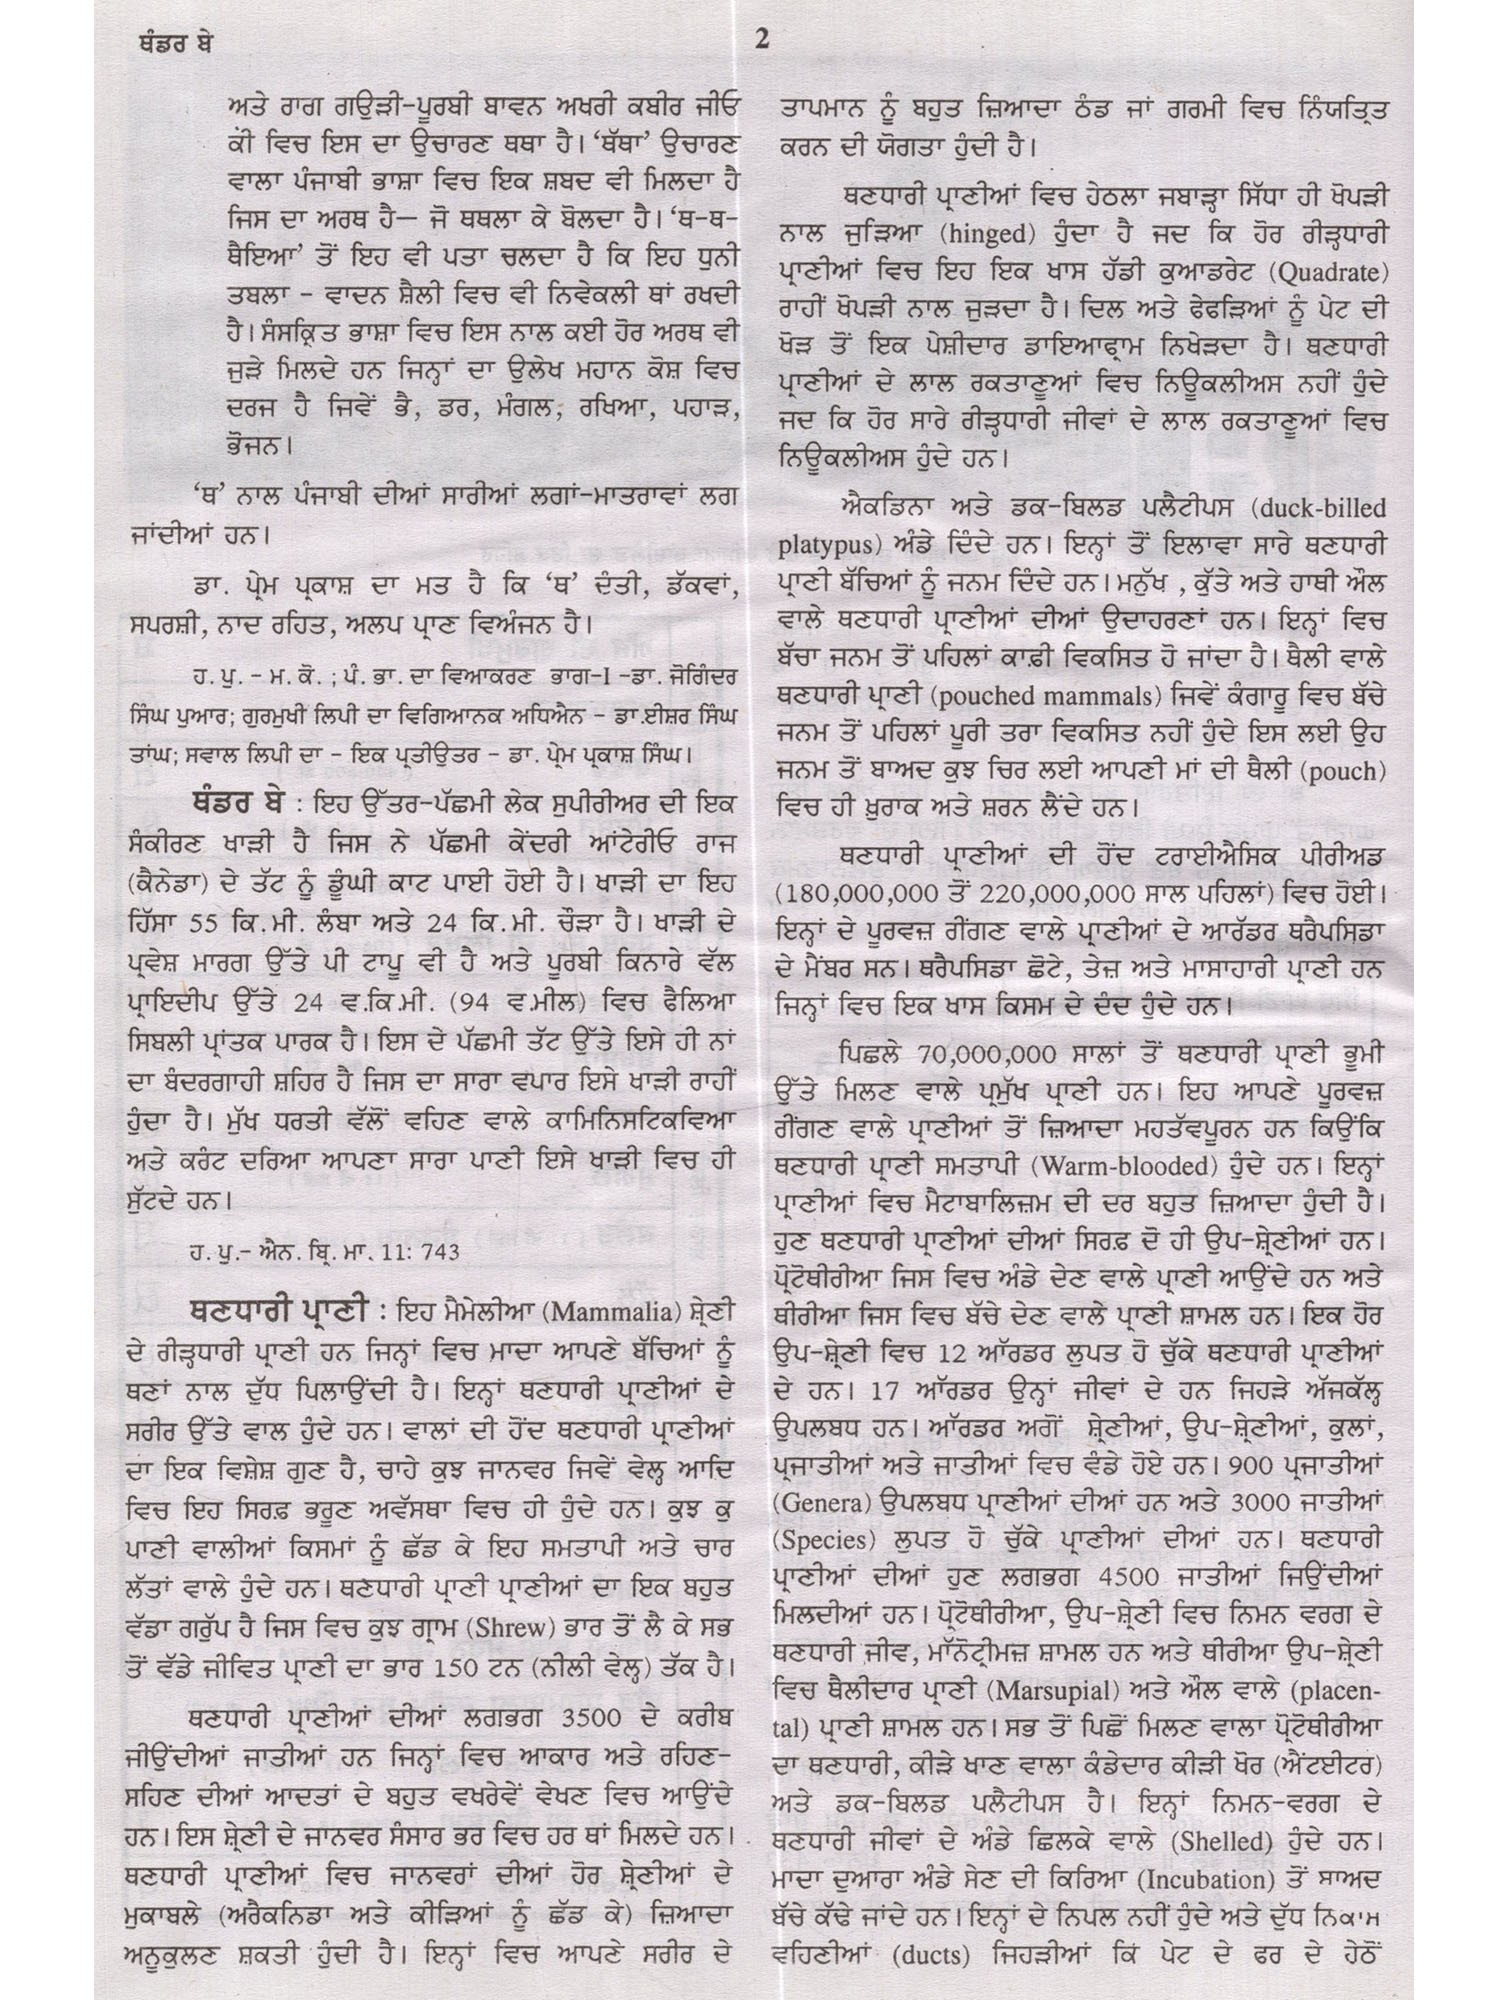 ਥੰਡਰ ਬੇ
2
ਅਤੇ ਰਾਗ ਗਉੜੀ-ਪੂਰਬੀ ਬਾਵਨ ਅਖਰੀ ਕਬੀਰ ਜੀਓ
ਕੀ ਵਿਚ ਇਸ ਦਾ ਉਚਾਰਣ ਥਥਾ ਹੈ। ‘ਥੱਥਾ’ ਉਚਾਰਣ
ਵਾਲਾ ਪੰਜਾਬੀ ਭਾਸ਼ਾ ਵਿਚ ਇਕ ਸ਼ਬਦ ਵੀ ਮਿਲਦਾ ਹੈ
ਜਿਸ ਦਾ ਅਰਥ ਹੈ— ਜੋ ਥਥਲਾ ਕੇ ਬੋਲਦਾ ਹੈ। ‘ਥ-ਥ-
ਥੈਇਆ’ ਤੋਂ ਇਹ ਵੀ ਪਤਾ ਚਲਦਾ ਹੈ ਕਿ ਇਹ ਧੁਨੀ
ਤਬਲਾ - ਵਾਦਨ ਸ਼ੈਲੀ ਵਿਚ ਵੀ ਨਿਵੇਕਲੀ ਥਾਂ ਰਖਦੀ
ਹੈ। ਸੰਸਕ੍ਰਿਤ ਭਾਸ਼ਾ ਵਿਚ ਇਸ ਨਾਲ ਕਈ ਹੋਰ ਅਰਥ ਵੀ
ਜੁੜੇ ਮਿਲਦੇ ਹਨ ਜਿਨ੍ਹਾਂ ਦਾ ਉਲੇਖ ਮਹਾਨ ਕੋਸ਼ ਵਿਚ
ਦਰਜ ਹੈ ਜਿਵੇਂ ਭੈ, ਡਰ, ਮੰਗਲ, ਰਖਿਆ, ਪਹਾੜ,
ਭੋਜਨ।
‘ਥ’ ਨਾਲ ਪੰਜਾਬੀ ਦੀਆਂ ਸਾਰੀਆਂ ਲਗਾਂ-ਮਾਤਰਾਵਾਂ ਲਗ
ਜਾਂਦੀਆਂ ਹਨ।
ਡਾ. ਪ੍ਰੇਮ ਪ੍ਰਕਾਸ਼ ਦਾ ਮਤ ਹੈ ਕਿ ‘ਥ’ ਦੰਤੀ, ਡੱਕਵਾਂ,
ਸਪਰਸ਼ੀ, ਨਾਦ ਰਹਿਤ, ਅਲਪ ਪ੍ਰਾਣ ਵਿਅੰਜਨ ਹੈ।
ਹ. ਪੁ. - ਮ. ਕੋ. ; ਪੰ. ਭਾ. ਦਾ ਵਿਆਕਰਣ ਭਾਗ-I -ਡਾ. ਜੋਗਿੰਦਰ
ਸਿੰਘ ਪੁਆਰ; ਗੁਰਮੁਖੀ ਲਿਪੀ ਦਾ ਵਿਗਿਆਨਕ ਅਧਿਐਨ - ਡਾ.ਈਸ਼ਰ ਸਿੰਘ
ਤਾਂਘ; ਸਵਾਲ ਲਿਪੀ ਦਾ - ਇਕ ਪ੍ਰਤੀਉਤਰ - ਡਾ. ਪ੍ਰੇਮ ਪ੍ਰਕਾਸ਼ ਸਿੰਘ।
ਥੰਡਰ ਬੇ : ਇਹ ਉੱਤਰ-ਪੱਛਮੀ ਲੇਕ ਸੁਪੀਰੀਅਰ ਦੀ ਇਕ
ਸੰਕੀਰਣ ਖਾੜੀ ਹੈ ਜਿਸ ਨੇ ਪੱਛਮੀ ਕੇਂਦਰੀ ਆਂਟੇਰੀਓ ਰਾਜ
(ਕੈਨੇਡਾ) ਦੇ ਤੱਟ ਨੂੰ ਡੂੰਘੀ ਕਾਟ ਪਾਈ ਹੋਈ ਹੈ। ਖਾੜੀ ਦਾ ਇਹ
ਹਿੱਸਾ 55 ਕਿ.ਮੀ. ਲੰਬਾ ਅਤੇ 24 ਕਿ.ਮੀ. ਚੌੜਾ ਹੈ। ਖਾੜੀ ਦੇ
ਪ੍ਰਵੇਸ਼ ਮਾਰਗ ਉੱਤੇ ਪੀ ਟਾਪੂ ਵੀ ਹੈ ਅਤੇ ਪੂਰਬੀ ਕਿਨਾਰੇ ਵੱਲ
ਪ੍ਰਾਇਦੀਪ ਉੱਤੇ 24 ਵ.ਕਿ.ਮੀ. (94 ਵ.ਮੀਲ) ਵਿਚ ਫੈਲਿਆ
ਸਿਬਲੀ ਪ੍ਰਾਂਤਕ ਪਾਰਕ ਹੈ। ਇਸ ਦੇ ਪੱਛਮੀ ਤੱਟ ਉੱਤੇ ਇਸੇ ਹੀ ਨਾਂ
ਦਾ ਬੰਦਰਗਾਹੀ ਸ਼ਹਿਰ ਹੈ ਜਿਸ ਦਾ ਸਾਰਾ ਵਪਾਰ ਇਸੇ ਖਾੜੀ ਰਾਹੀਂ
ਹੁੰਦਾ ਹੈ। ਮੁੱਖ ਧਰਤੀ ਵੱਲੋਂ ਵਹਿਣ ਵਾਲੇ ਕਾਮਿਨਿਸਟਿਕਵਿਆ
ਅਤੇ ਕਰੰਟ ਦਰਿਆ ਆਪਣਾ ਸਾਰਾ ਪਾਣੀ ਇਸੇ ਖਾੜੀ ਵਿਚ ਹੀ
ਸੁੱਟਦੇ ਹਨ।
ਹ. ਪੁ.- ਐਨ. ਬ੍ਰਿ. ਮਾ. 11: 743
ਥਣਧਾਰੀ ਪ੍ਰਾਣੀ : ਇਹ ਮੈਮੇਲੀਆ (Mammalia) ਸ਼੍ਰੇਣੀ
ਦੇ ਰੀੜ੍ਹਧਾਰੀ ਪ੍ਰਾਣੀ ਹਨ ਜਿਨ੍ਹਾਂ ਵਿਚ ਮਾਦਾ ਆਪਣੇ ਬੱਚਿਆਂ ਨੂੰ
ਥਣਾਂ ਨਾਲ ਦੁੱਧ ਪਿਲਾਉਂਦੀ ਹੈ। ਇਨ੍ਹਾਂ ਥਣਧਾਰੀ ਪ੍ਰਾਣੀਆਂ ਦੇ
ਸਰੀਰ ਉੱਤੇ ਵਾਲ ਹੁੰਦੇ ਹਨ। ਵਾਲਾਂ ਦੀ ਹੋਂਦ ਥਣਧਾਰੀ ਪ੍ਰਾਣੀਆਂ
ਦਾ ਇਕ ਵਿਸ਼ੇਸ਼ ਗੁਣ ਹੈ, ਚਾਹੇ ਕੁਝ ਜਾਨਵਰ ਜਿਵੇਂ ਵੇਲ੍ਹ ਆਦਿ
ਵਿਚ ਇਹ ਸਿਰਫ਼ ਭਰੂਣ ਅਵੱਸਥਾ ਵਿਚ ਹੀ ਹੁੰਦੇ ਹਨ। ਕੁਝ ਕੁ
ਪਾਣੀ ਵਾਲੀਆਂ ਕਿਸਮਾਂ ਨੂੰ ਛੱਡ ਕੇ ਇਹ ਸਮਤਾਪੀ ਅਤੇ ਚਾਰ
ਲੱਤਾਂ ਵਾਲੇ ਹੁੰਦੇ ਹਨ। ਥਣਧਾਰੀ ਪ੍ਰਾਣੀ ਪ੍ਰਾਣੀਆਂ ਦਾ ਇਕ ਬਹੁਤ
ਵੱਡਾ ਗਰੁੱਪ ਹੈ ਜਿਸ ਵਿਚ ਕੁਝ ਗ੍ਰਾਮ (Shrew) ਭਾਰ ਤੋਂ ਲੈ ਕੇ ਸਭ
ਤੋਂ ਵੱਡੇ ਜੀਵਿਤ ਪ੍ਰਾਣੀ ਦਾ ਭਾਰ 150 ਟਨ (ਨੀਲੀ ਵੇਲ੍ਹ) ਤੱਕ ਹੈ।
ਥਣਧਾਰੀ ਪ੍ਰਾਣੀਆਂ ਦੀਆਂ ਲਗਭਗ 3500 ਦੇ ਕਰੀਬ
ਜੀਉਂਦੀਆਂ ਜਾਤੀਆਂ ਹਨ ਜਿਨ੍ਹਾਂ ਵਿਚ ਆਕਾਰ ਅਤੇ ਰਹਿਣ-
ਸਹਿਣ ਦੀਆਂ ਆਦਤਾਂ ਦੇ ਬਹੁਤ ਵਖਰੇਵੇਂ ਵੇਖਣ ਵਿਚ ਆਉਂਦੇ
ਹਨ। ਇਸ ਸ਼੍ਰੇਣੀ ਦੇ ਜਾਨਵਰ ਸੰਸਾਰ ਭਰ ਵਿਚ ਹਰ ਥਾਂ ਮਿਲਦੇ ਹਨ।
ਥਣਧਾਰੀ ਪ੍ਰਾਣੀਆਂ ਵਿਚ ਜਾਨਵਰਾਂ ਦੀਆਂ ਹੋਰ ਸ਼੍ਰੇਣੀਆਂ ਦੇ
ਮੁਕਾਬਲੇ (ਅਰੈਕਨਿਡਾ ਅਤੇ ਕੀੜਿਆਂ ਨੂੰ ਛੱਡ ਕੇ) ਜ਼ਿਆਦਾ
ਅਨੁਕੂਲਣ ਸ਼ਕਤੀ ਹੁੰਦੀ ਹੈ। ਇਨ੍ਹਾਂ ਵਿਚ ਆਪਣੇ ਸਰੀਰ ਦੇ
ਤਾਪਮਾਨ ਨੂੰ ਬਹੁਤ ਜ਼ਿਆਦਾ ਠੰਡ ਜਾਂ ਗਰਮੀ ਵਿਚ ਨਿੰਯਤ੍ਰਿਤ
ਕਰਨ ਦੀ ਯੋਗਤਾ ਹੁੰਦੀ ਹੈ।
ਥਣਧਾਰੀ ਪ੍ਰਾਣੀਆਂ ਵਿਚ ਹੇਠਲਾ ਜਬਾੜ੍ਹਾ ਸਿੱਧਾ ਹੀ ਖੋਪੜੀ
ਨਾਲ ਜੁੜਿਆ (hinged) ਹੁੰਦਾ ਹੈ ਜਦ ਕਿ ਹੋਰ ਰੀੜ੍ਹਧਾਰੀ
ਪ੍ਰਾਣੀਆਂ ਵਿਚ ਇਹ ਇਕ ਖਾਸ ਹੱਡੀ ਕੁਆਡਰੇਟ (Quadrate)
ਰਾਹੀਂ ਖੋਪੜੀ ਨਾਲ ਜੁੜਦਾ ਹੈ। ਦਿਲ ਅਤੇ ਫੇਫੜਿਆਂ ਨੂੰ ਪੇਟ ਦੀ
ਖੋੜ ਤੋਂ ਇਕ ਪੇਸ਼ੀਦਾਰ ਡਾਇਆਫ੍ਰਾਮ ਨਿਖੇੜਦਾ ਹੈ। ਥਣਧਾਰੀ
ਪ੍ਰਾਣੀਆਂ ਦੇ ਲਾਲ ਰਕਤਾਣੂਆਂ ਵਿਚ ਨਿਊਕਲੀਅਸ ਨਹੀਂ ਹੁੰਦੇ
ਜਦ ਕਿ ਹੋਰ ਸਾਰੇ ਰੀੜ੍ਹਧਾਰੀ ਜੀਵਾਂ ਦੇ ਲਾਲ ਰਕਤਾਣੂਆਂ ਵਿਚ
ਨਿਊਕਲੀਅਸ ਹੁੰਦੇ ਹਨ।
ਐਕਡਿਨਾ ਅਤੇ ਡਕ-ਬਿਲਡ ਪਲੈਟੀਪਸ (duck-billed
platypus) ਅੰਡੇ ਦਿੰਦੇ ਹਨ। ਇਨ੍ਹਾਂ ਤੋਂ ਇਲਾਵਾ ਸਾਰੇ ਥਣਧਾਰੀ
ਪ੍ਰਾਣੀ ਬੱਚਿਆਂ ਨੂੰ ਜਨਮ ਦਿੰਦੇ ਹਨ। ਮਨੁੱਖ , ਕੁੱਤੇ ਅਤੇ ਹਾਥੀ ਔਲ
ਵਾਲੇ ਥਣਧਾਰੀ ਪ੍ਰਾਣੀਆਂ ਦੀਆਂ ਉਦਾਹਰਣਾਂ ਹਨ। ਇਨ੍ਹਾਂ ਵਿਚ
ਬੱਚਾ ਜਨਮ ਤੋਂ ਪਹਿਲਾਂ ਕਾਫ਼ੀ ਵਿਕਸਿਤ ਹੋ ਜਾਂਦਾ ਹੈ। ਥੈਲੀ ਵਾਲੇ
ਥਣਧਾਰੀ ਪ੍ਰਾਣੀ (pouched mammals) ਜਿਵੇਂ ਕੰਗਾਰੂ ਵਿਚ ਬੱਚੇ
ਜਨਮ ਤੋਂ ਪਹਿਲਾਂ ਪੂਰੀ ਤਰਾ ਵਿਕਸਿਤ ਨਹੀਂ ਹੁੰਦੇ ਇਸ ਲਈ ਉਹ
ਜਨਮ ਤੋਂ ਬਾਅਦ ਕੁਝ ਚਿਰ ਲਈ ਆਪਣੀ ਮਾਂ ਦੀ ਥੈਲੀ (pouch)
ਵਿਚ ਹੀ ਖ਼ੁਰਾਕ ਅਤੇ ਸ਼ਰਨ ਲੈਂਦੇ ਹਨ।
ਥਣਧਾਰੀ ਪ੍ਰਾਣੀਆਂ ਦੀ ਹੋਂਦ ਟਰਾਈਐਸਿਕ ਪੀਰੀਅਡ
(180,000,000 ਤੋਂ 220,000,000 ਸਾਲ ਪਹਿਲਾਂ) ਵਿਚ ਹੋਈ।
ਇਨ੍ਹਾਂ ਦੇ ਪੂਰਵਜ਼ ਰੀਂਗਣ ਵਾਲੇ ਪ੍ਰਾਣੀਆਂ ਦੇ ਆਰੱਡਰ ਥਰੈਪਸਿਡਾ
ਦੇ ਮੈਂਬਰ ਸਨ। ਥਰੈਪਸਿਡਾ ਛੋਟੇ, ਤੇਜ਼ ਅਤੇ ਮਾਸਾਹਾਰੀ ਪ੍ਰਾਣੀ ਹਨ
ਜਿਨ੍ਹਾਂ ਵਿਚ ਇਕ ਖਾਸ ਕਿਸਮ ਦੇ ਦੰਦ ਹੁੰਦੇ ਹਨ।
ਪਿਛਲੇ 70,000,000 ਸਾਲਾਂ ਤੋਂ ਥਣਧਾਰੀ ਪ੍ਰਾਣੀ ਭੂਮੀ
ਉੱਤੇ ਮਿਲਣ ਵਾਲੇ ਪ੍ਰਮੁੱਖ ਪ੍ਰਾਣੀ ਹਨ। ਇਹ ਆਪਣੇ ਪੂਰਵਜ਼
ਰੀਂਗਣ ਵਾਲੇ ਪ੍ਰਾਣੀਆਂ ਤੋਂ ਜ਼ਿਆਦਾ ਮਹਤੱਵਪੂਰਨ ਹਨ ਕਿਉਂਕਿ
ਥਣਧਾਰੀ ਪ੍ਰਾਣੀ ਸਮਤਾਪੀ (Warm-blooded) ਹੁੰਦੇ ਹਨ। ਇਨ੍ਹਾਂ
ਪ੍ਰਾਣੀਆਂ ਵਿਚ ਮੈਟਾਬਾਲਿਜ਼ਮ ਦੀ ਦਰ ਬਹੁਤ ਜ਼ਿਆਦਾ ਹੁੰਦੀ ਹੈ।
ਹੁਣ ਥਣਧਾਰੀ ਪ੍ਰਾਣੀਆਂ ਦੀਆਂ ਸਿਰਫ਼ ਦੋ ਹੀ ਉਪ-ਸ਼੍ਰੇਣੀਆਂ ਹਨ।
ਪ੍ਰੋਟੋਥੀਰੀਆ ਜਿਸ ਵਿਚ ਅੰਡੇ ਦੇਣ ਵਾਲੇ ਪ੍ਰਾਣੀ ਆਉਂਦੇ ਹਨ ਅਤੇ
ਥੀਰੀਆ ਜਿਸ ਵਿਚ ਬੱਚੇ ਦੇਣ ਵਾਲੇ ਪ੍ਰਾਣੀ ਸ਼ਾਮਲ ਹਨ। ਇਕ ਹੋਰ
ਉਪ-ਸ਼੍ਰੇਣੀ ਵਿਚ 12 ਆੱਰਡਰ ਲੁਪਤ ਹੋ ਚੁੱਕੇ ਥਣਧਾਰੀ ਪ੍ਰਾਣੀਆਂ
ਦੇ ਹਨ। 17 ਆੱਰਡਰ ਉਨ੍ਹਾਂ ਜੀਵਾਂ ਦੇ ਹਨ ਜਿਹੜੇ ਅੱਜਕੱਲ੍ਹ
ਉਪਲਬਧ ਹਨ। ਆੱਰਡਰ ਅਗੋਂ ਸ਼੍ਰੇਣੀਆਂ, ਉਪ-ਸ਼੍ਰੇਣੀਆਂ, ਕੁਲਾਂ,
ਪ੍ਰਜਾਤੀਆਂ ਅਤੇ ਜਾਤੀਆਂ ਵਿਚ ਵੰਡੇ ਹੋਏ ਹਨ। 900 ਪ੍ਰਜਾਤੀਆਂ
(Genera) ਉਪਲਬਧ ਪ੍ਰਾਣੀਆਂ ਦੀਆਂ ਹਨ ਅਤੇ 3000 ਜਾਤੀਆਂ
(Species) ਲੁਪਤ ਹੋ ਚੁੱਕੇ ਪ੍ਰਾਣੀਆਂ ਦੀਆਂ ਹਨ। ਥਣਧਾਰੀ
ਪ੍ਰਾਣੀਆਂ ਦੀਆਂ ਹੁਣ ਲਗਭਗ 4500 ਜਾਤੀਆਂ ਜਿਉਂਦੀਆਂ
ਮਿਲਦੀਆਂ ਹਨ। ਪ੍ਰੋਟੋਥੀਰੀਆ, ਉਪ-ਸ਼੍ਰੇਣੀ ਵਿਚ ਨਿਮਨ ਵਰਗ ਦੇ
ਥਣਧਾਰੀ ਜੀਵ, ਮਾੱਨੋਟ੍ਰੀਮਜ਼ ਸ਼ਾਮਲ ਹਨ ਅਤੇ ਥੀਰੀਆ ਉਪ-ਸ਼੍ਰੇਣੀ
ਵਿਚ ਥੈਲੀਦਾਰ ਪ੍ਰਾਣੀ (Marsupial) ਅਤੇ ਔਲ ਵਾਲੇ (placen-
tal) ਪ੍ਰਾਣੀ ਸ਼ਾਮਲ ਹਨ। ਸਭ ਤੋਂ ਪਿਛੋਂ ਮਿਲਣ ਵਾਲਾ ਪ੍ਰੋਟੋਥੀਰੀਆ
ਦਾ ਥਣਧਾਰੀ, ਕੀੜੇ ਖਾਣ ਵਾਲਾ ਕੰਡੇਦਾਰ ਕੀੜੀ ਖੋਰ (ਐਂਟਈਟਰ)
ਅਤੇ ਡਕ-ਬਿਲਡ ਪਲੈਟੀਪਸ ਹੈ। ਇਨ੍ਹਾਂ ਨਿਮਨ-ਵਰਗ ਦੇ
ਥਣਧਾਰੀ ਜੀਵਾਂ ਦੇ ਅੰਡੇ ਛਿਲਕੇ ਵਾਲੇ (Shelled) ਹੁੰਦੇ ਹਨ।
ਮਾਦਾ ਦੁਆਰਾ ਅੰਡੇ ਸੇਣ ਦੀ ਕਿਰਿਆ (Incubation) ਤੋਂ ਸਾਅਦ
ਬੱਚੇ ਕੱਢੇ ਜਾਂਦੇ ਹਨ। ਇਨ੍ਹਾਂ ਦੇ ਨਿਪਲ ਨਹੀਂ ਹੁੰਦੇ ਅਤੇ ਦੁੱਧ ਨਿਕਾਸ
ਵਹਿਣੀਆਂ (ducts) ਜਿਹੜੀਆਂ ਕਿ ਪੇਟ ਦੇ ਫਰ ਦੇ ਹੇਠੋਂ